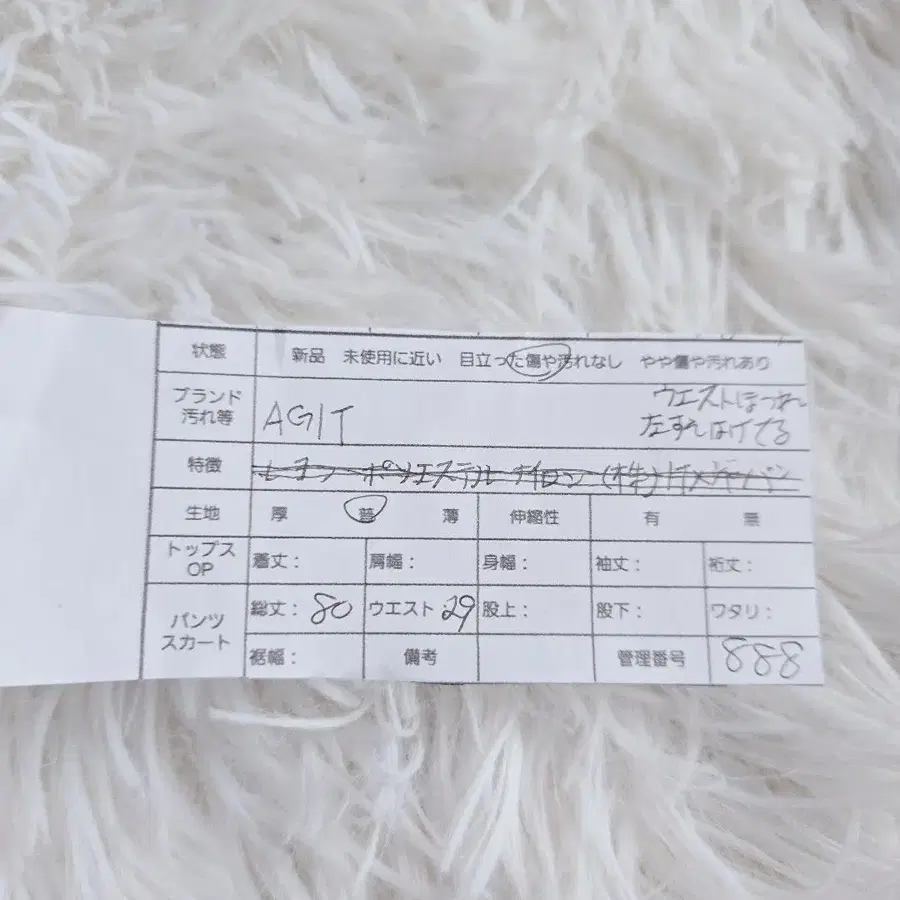 状態 新品 未使用に近い 目立った傷や汚れなし やや傷や汚れあり
ブランド
汚れ等 AGIT ウエストほつれ
左すれはげてる
特徴 レーヨン ポリエステル ナイロン
生地 厚 普 薄 伸縮性 有 無
トップス
OP 着丈: 肩幅: 身幅: 袖丈: 裄丈:
パンツ
スカート 総丈: 80 ウエスト: 29 股上: 股下: ワタリ:
裾幅: 備考 管理番号 888